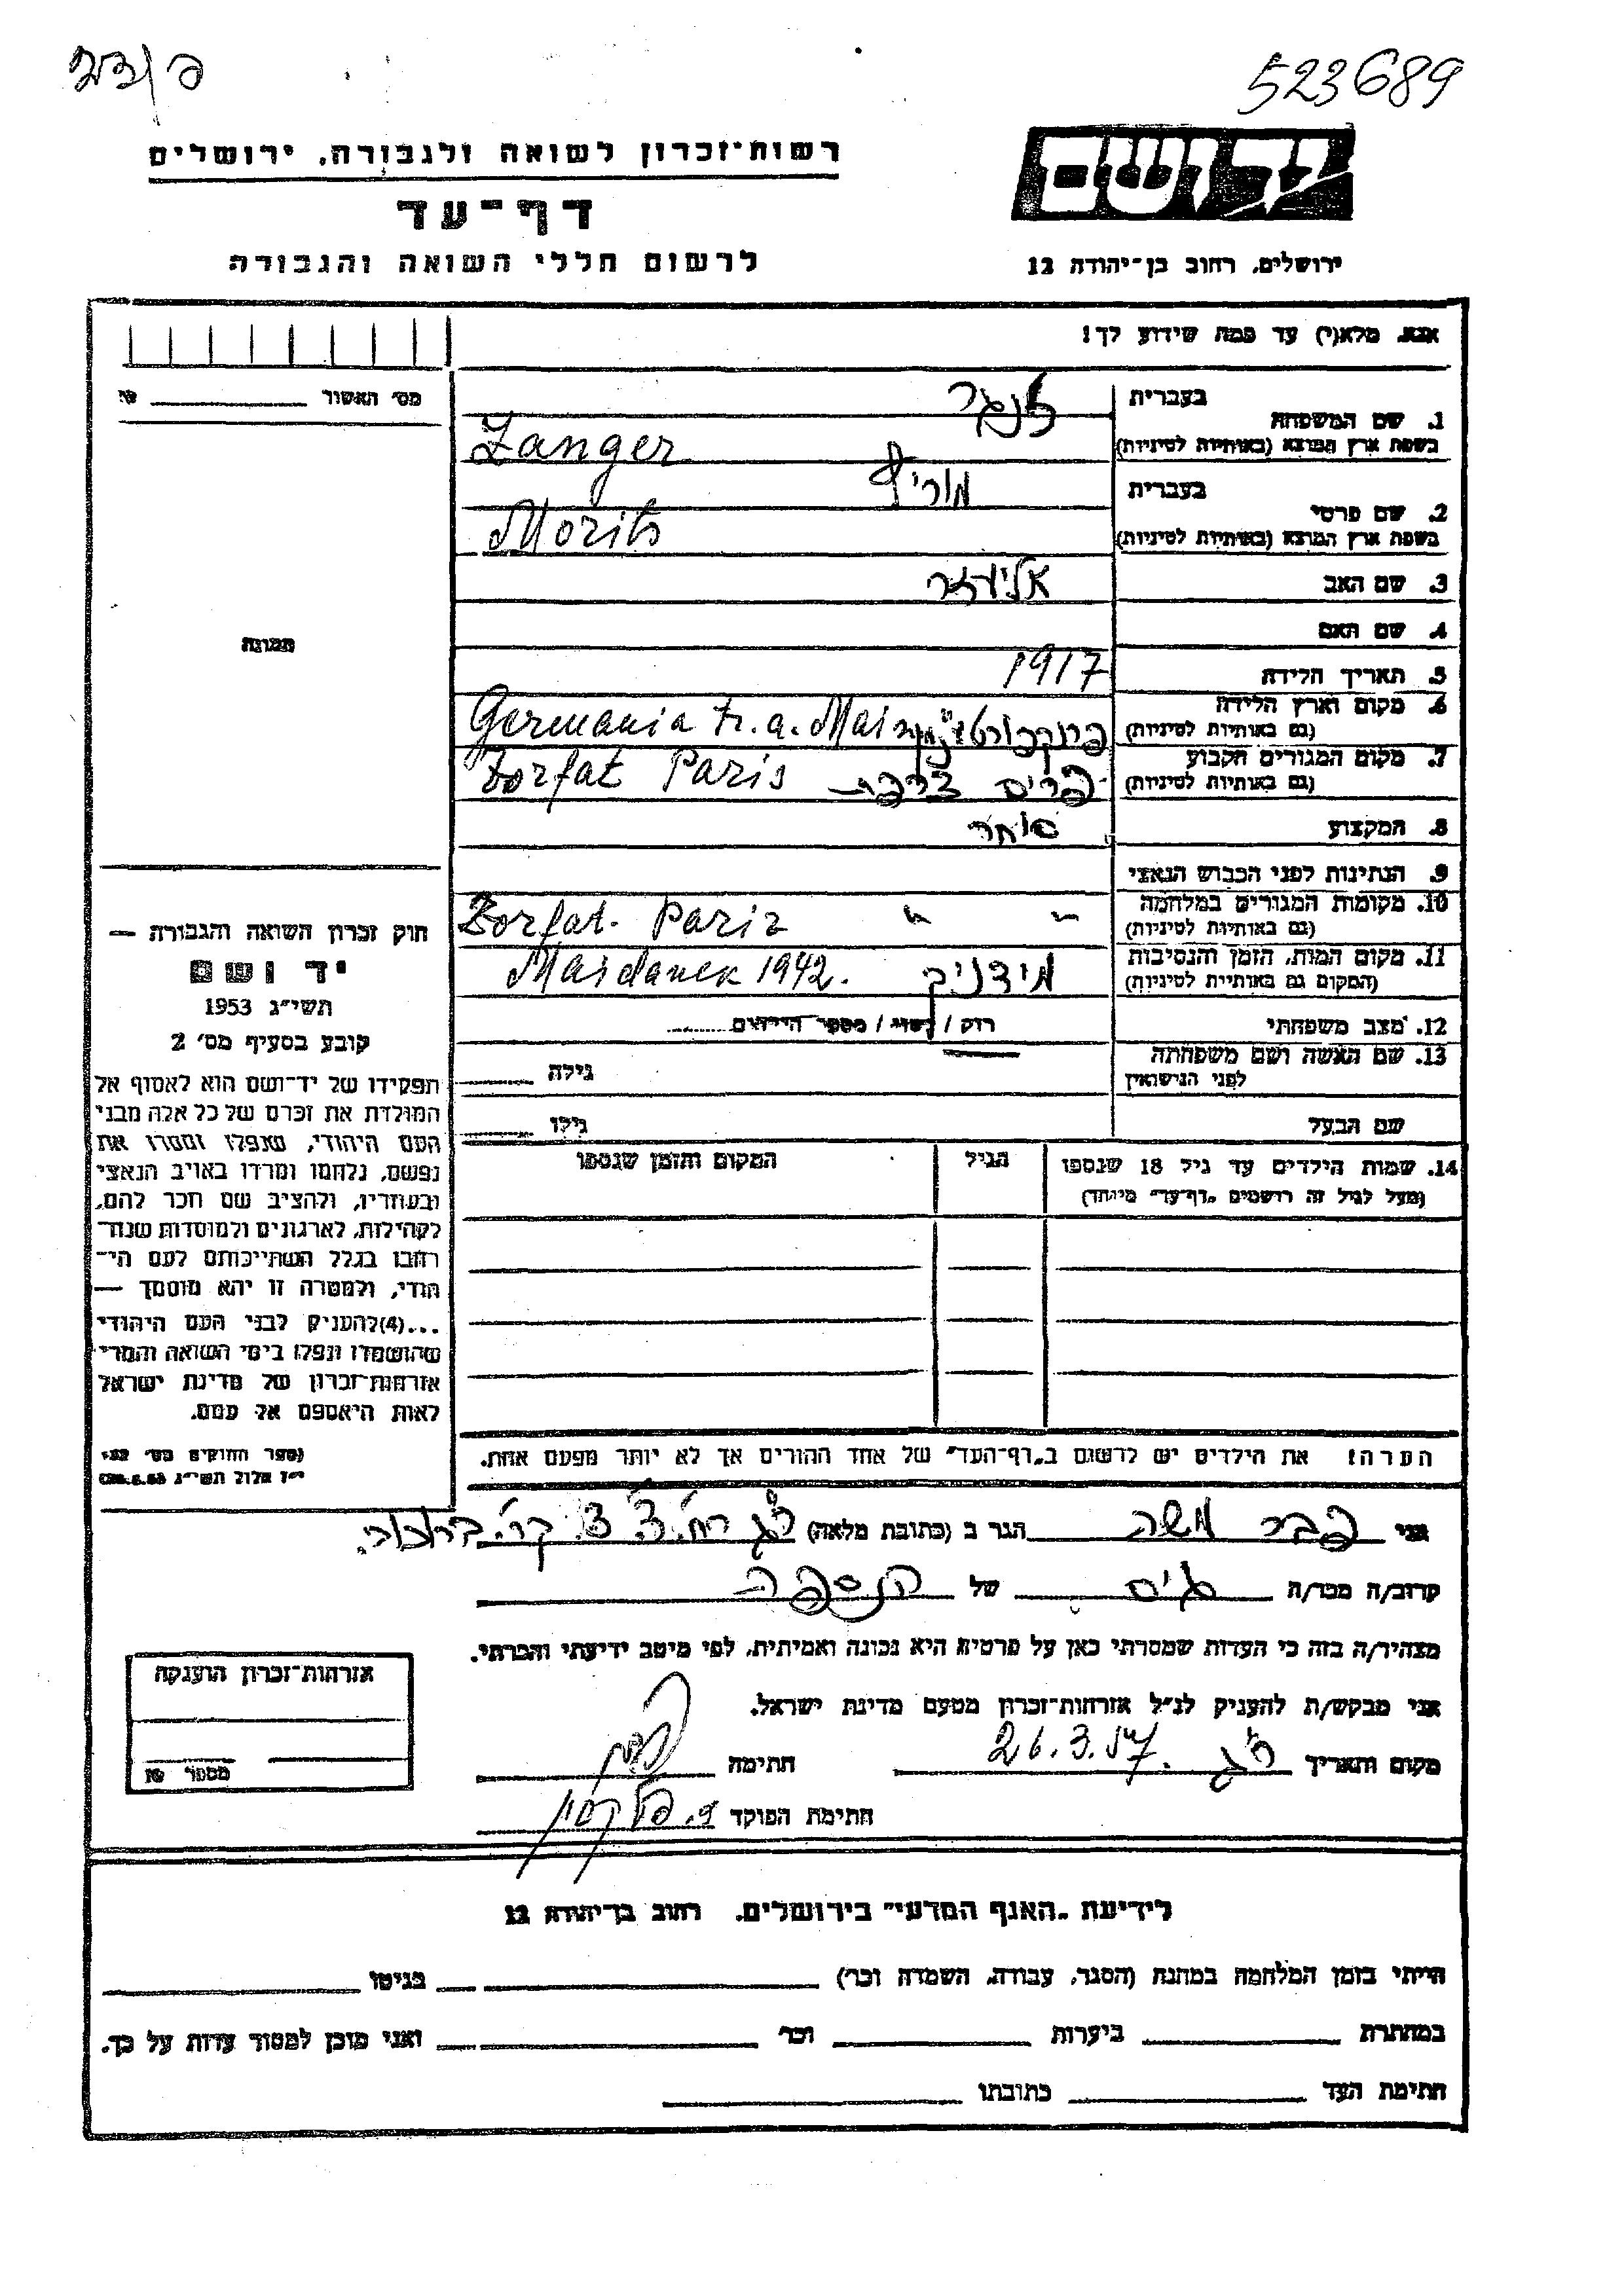 523689
רשות־זכרון לשואה ולגבורה, ירושלים
יד ושם
דף־עד
לרשום חללי השואה והגבורה
ירושלים, רחוב בן־יהודה 12
אנא, מלא(י) עד כמה שידוע לך!
מס׳ האשור
בעברית
זנגר
1. שם המשפחה
בשפת ארץ המוצא (באותיות לטיניות)
Zanger
בעברית
מוריץ
2. שם פרטי
בשפת ארץ המוצא (באותיות לטיניות)
Morits
3. שם האב אליעזר
4. שם האם
תמונה
5. תאריך הלידה 1917
6. מקום וארץ הלידה
(גם באותיות לטיניות)
Germania Fr. a. Main פרנקפורט
7. מקום המגורים הקבוע
(גם באותיות לטיניות)
פריס צרפת Zorfat Paris
8. המקצוע סוחר
9. הנתינות לפני הכבוש הנאצי
10. מקומות המגורים במלחמה
(גם באותיות לטיניות)
" " Zorfat. Pariz
11. מקום המות, הזמן והנסיבות
(המקום גם באותיות לטיניות)
מידניק Maidanek 1942.
12. מצב משפחתי רוק / נשוי / מספר הילדים
13. שם האשה ושם משפחתה
לפני הנישואין
גילה
שם הבעל גילו
14. שמות הילדים עד גיל 18 שנספו הגיל המקום והזמן שנספו
(מעל לגיל זה רושמים „דף־עד״ מיוחד)
חוק זכרון השואה והגבורה —
יד ושם
תשי״ג 1953
קובע בסעיף מס׳ 2
תפקידו של יד־ושם הוא לאסוף אל
המולדת את זכרם של כל אלה מבני
העם היהודי, שנפלו ומסרו את
נפשם, נלחמו ומרדו באויב הנאצי
ובעוזריו, ולהציב שם וזכר להם,
לקהילות, לארגונים ולמוסדות שנח־
רבו בגלל השתייכותם לעם הי־
הודי, ולמטרה זו יהא מוסמך —
...(4)להעניק לבני העם היהודי
שהושמדו ונפלו בימי השואה והמרי
אזרחות־זכרון של מדינת ישראל
לאות היאספם אל עמם.
(ספר החוקים מס׳ 132
י״ז אלול תשי״ג 28.8.53)
הערה: את הילדים יש לרשום ב„דף־העד״ של אחד ההורים אך לא יותר מפעם אחת.
אני פבר משה הגר ב (כתובת מלאה) ר״ג רח׳
קרוב/ה מכר/ה גיס של הנספה
מצהיר/ה בזה כי העדות שמסרתי כאן על פרטיה היא נכונה ואמיתית, לפי מיטב ידיעתי והכרתי.
אני מבקש/ת להעניק לנ״ל אזרחות־זכרון מטעם מדינת ישראל.
מקום ותאריך ר״ג 26.3.57. חתימה
חתימת הפוקד
אזרחות־זכרון הוענקה
מספר
לידיעת „האגף המדעי״ בירושלים, רחוב בן־יהודה 12
הייתי בזמן המלחמה במחנה (הסגר, עבודה, השמדה וכו׳) בגיטו
במחתרת ביערות וכו׳ ואני מוכן למסור עדות על כך.
חתימת העד כתובתו